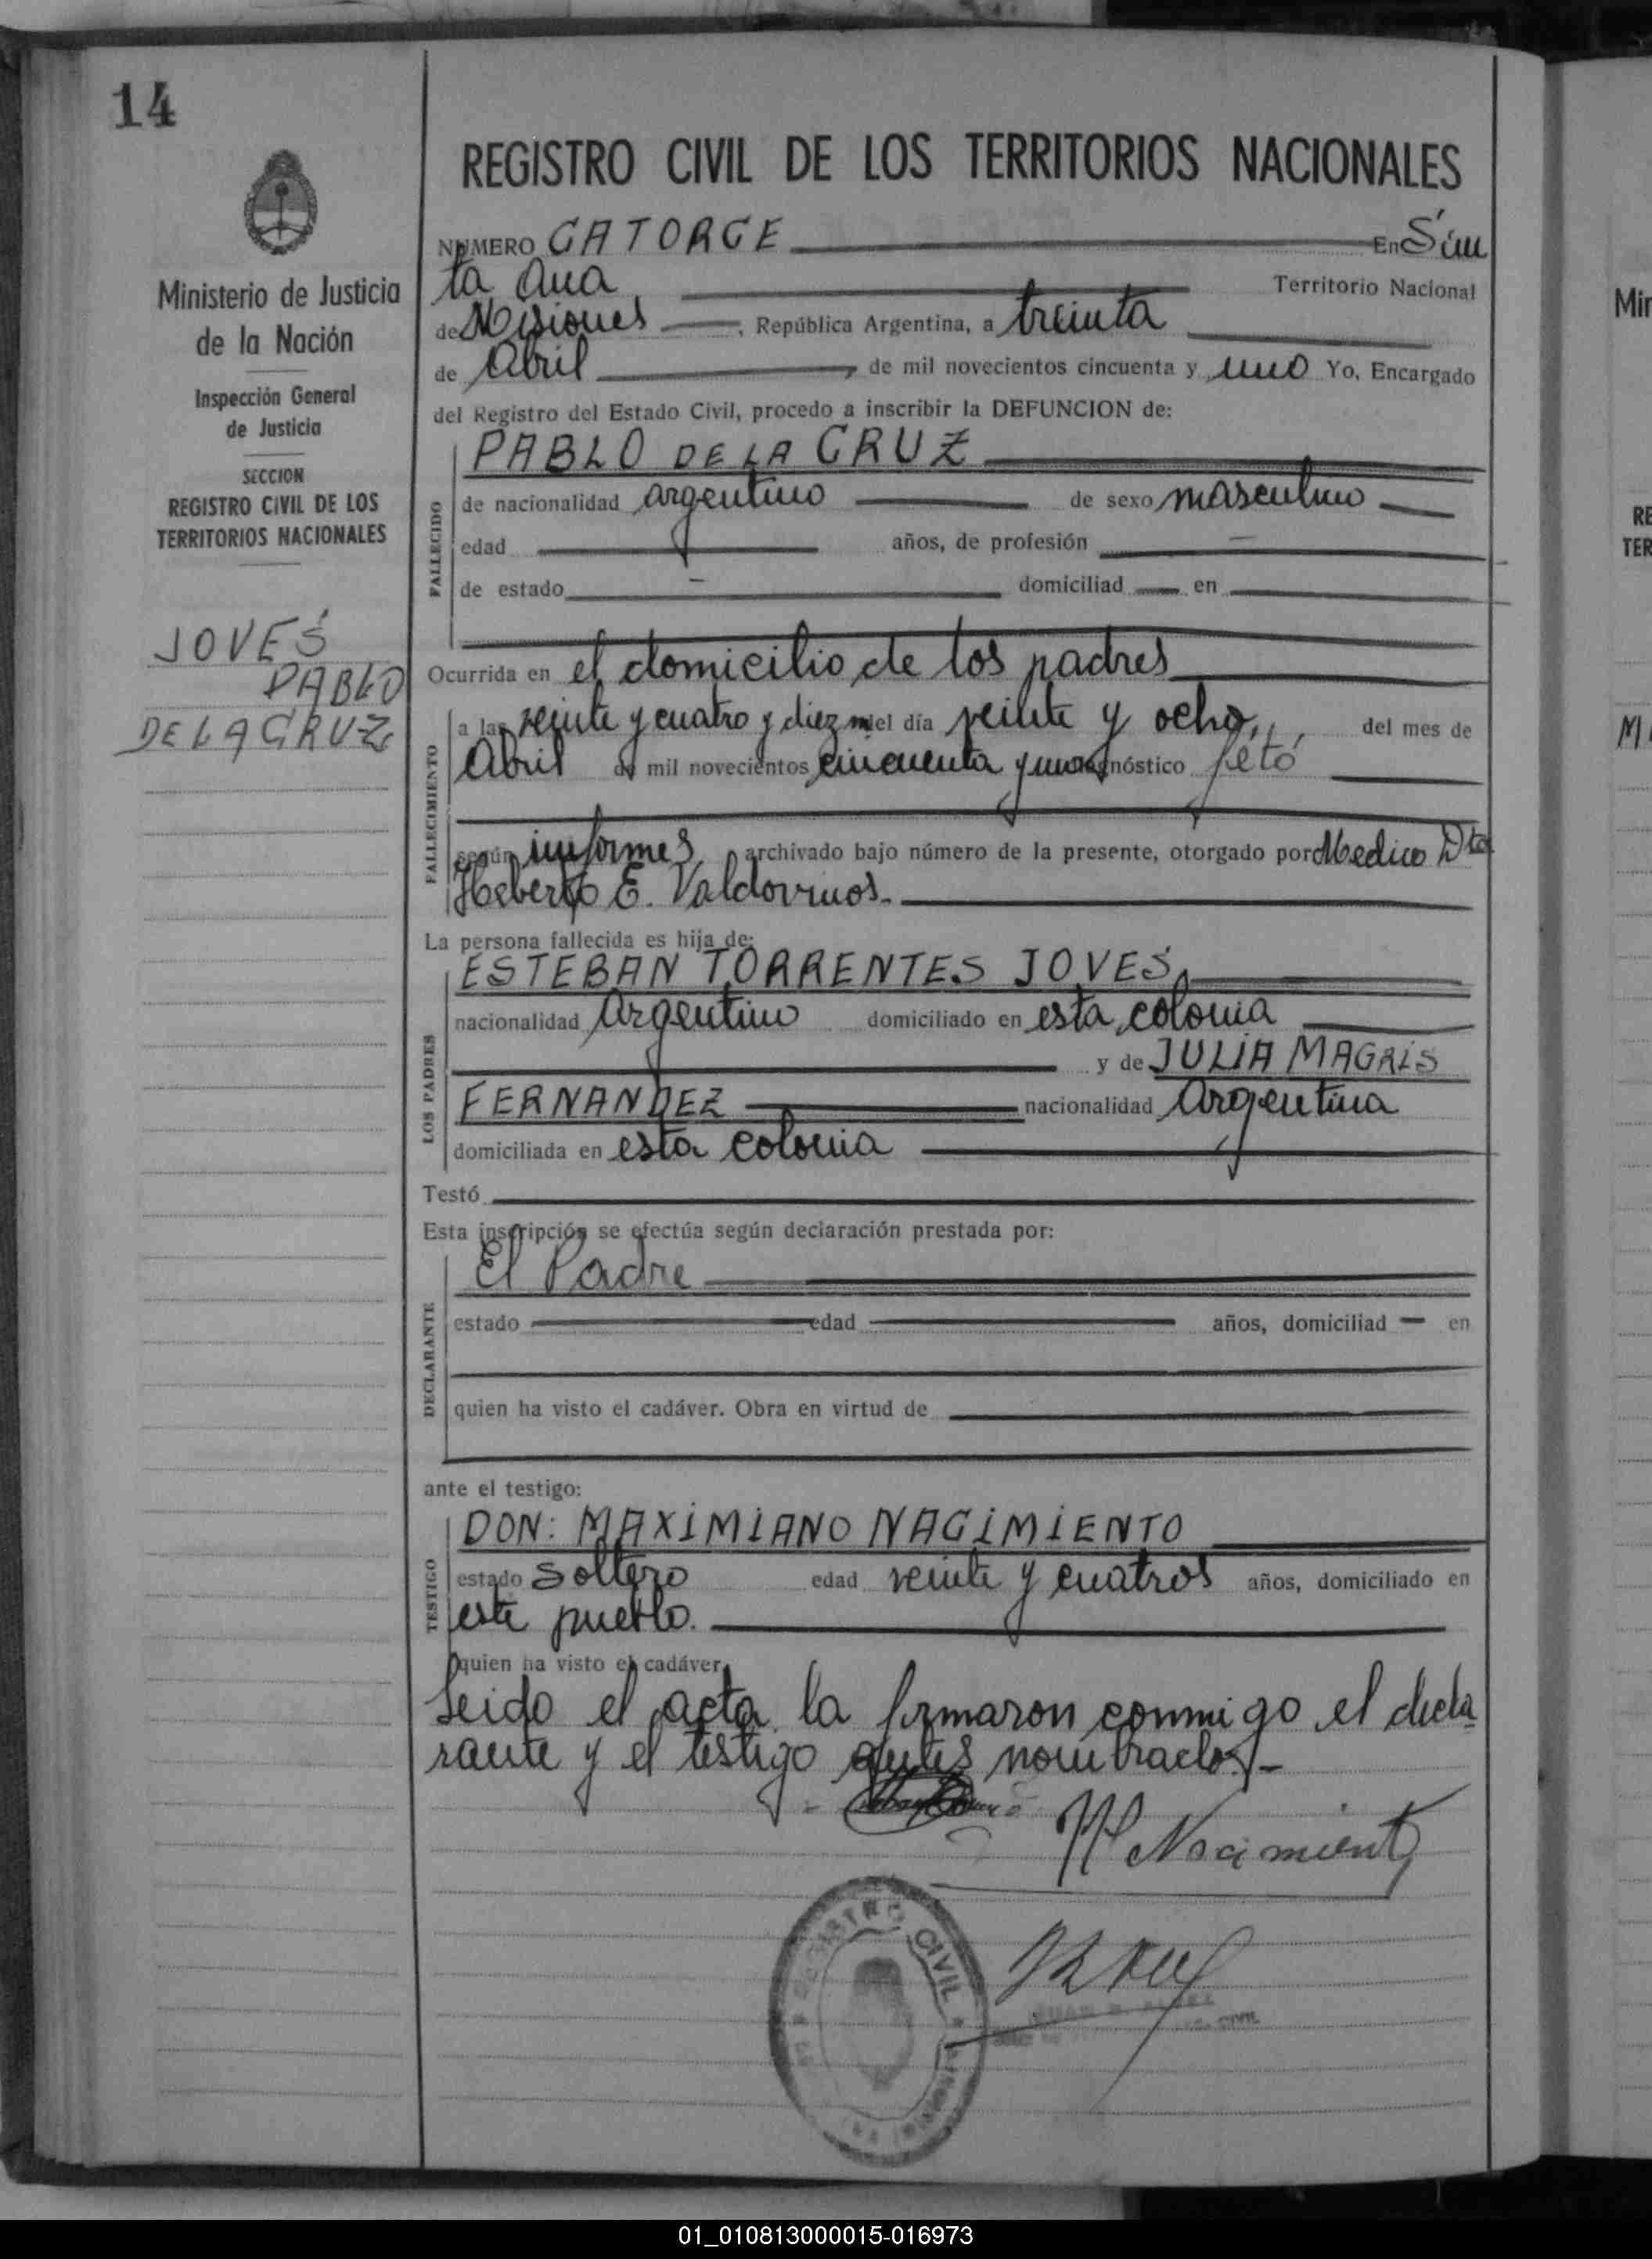 14
REGISTRO CIVIL DE LOS TERRITORIOS NACIONALES
Ministerio de Justicia
de la Nación
Inspección General
de Justicia
SECCION
REGISTRO CIVIL DE LOS
TERRITORIOS NACIONALES
JOVES
PABLO
DE LA CRUZ
NUMERO CATORCE En San
ta Ana Territorio Nacional
de Misiones, República Argentina, a treinta
de Abril de mil novecientos cincuenta y uno Yo, Encargado
del Registro del Estado Civil, procedo a inscribir la DEFUNCION de:
PABLO DE LA CRUZ
FALLECIDO
de nacionalidad argentino de sexo masculino
edad años, de profesión
de estado domiciliad en
Ocurrida en el domicilio de los padres
FALLECIMIENTO
a las veinte y cuatro y diez m del día veinte y ocho, del mes de
Abril de mil novecientos cincuenta y uno diagnóstico feto
según informes archivado bajo número de la presente, otorgado por Medico
Heberto E. Valdovinos.-
La persona fallecida es hija de:
LOS PADRES
ESTEBAN TORRENTES JOVES
nacionalidad Argentino domiciliado en esta colonia
y de JULIA MAGRIS
FERNANDEZ nacionalidad Argentina
domiciliada en esta colonia
Testó
Esta inscripción se efectúa según declaración prestada por:
DECLARANTE
El Padre
estado edad años, domiciliad en
quien ha visto el cadáver. Obra en virtud de
ante el testigo:
TESTIGO
DON: MAXIMIANO NACIMIENTO
estado Soltero edad veinte y cuatros años, domiciliado en
este pueblo.
quien ha visto el cadáver.
Leido el acta la firmaron conmigo el decla
rante y el testigo antes nombrados.-
M Nacimiento
REGISTRO CIVIL
01_010813000015-016973